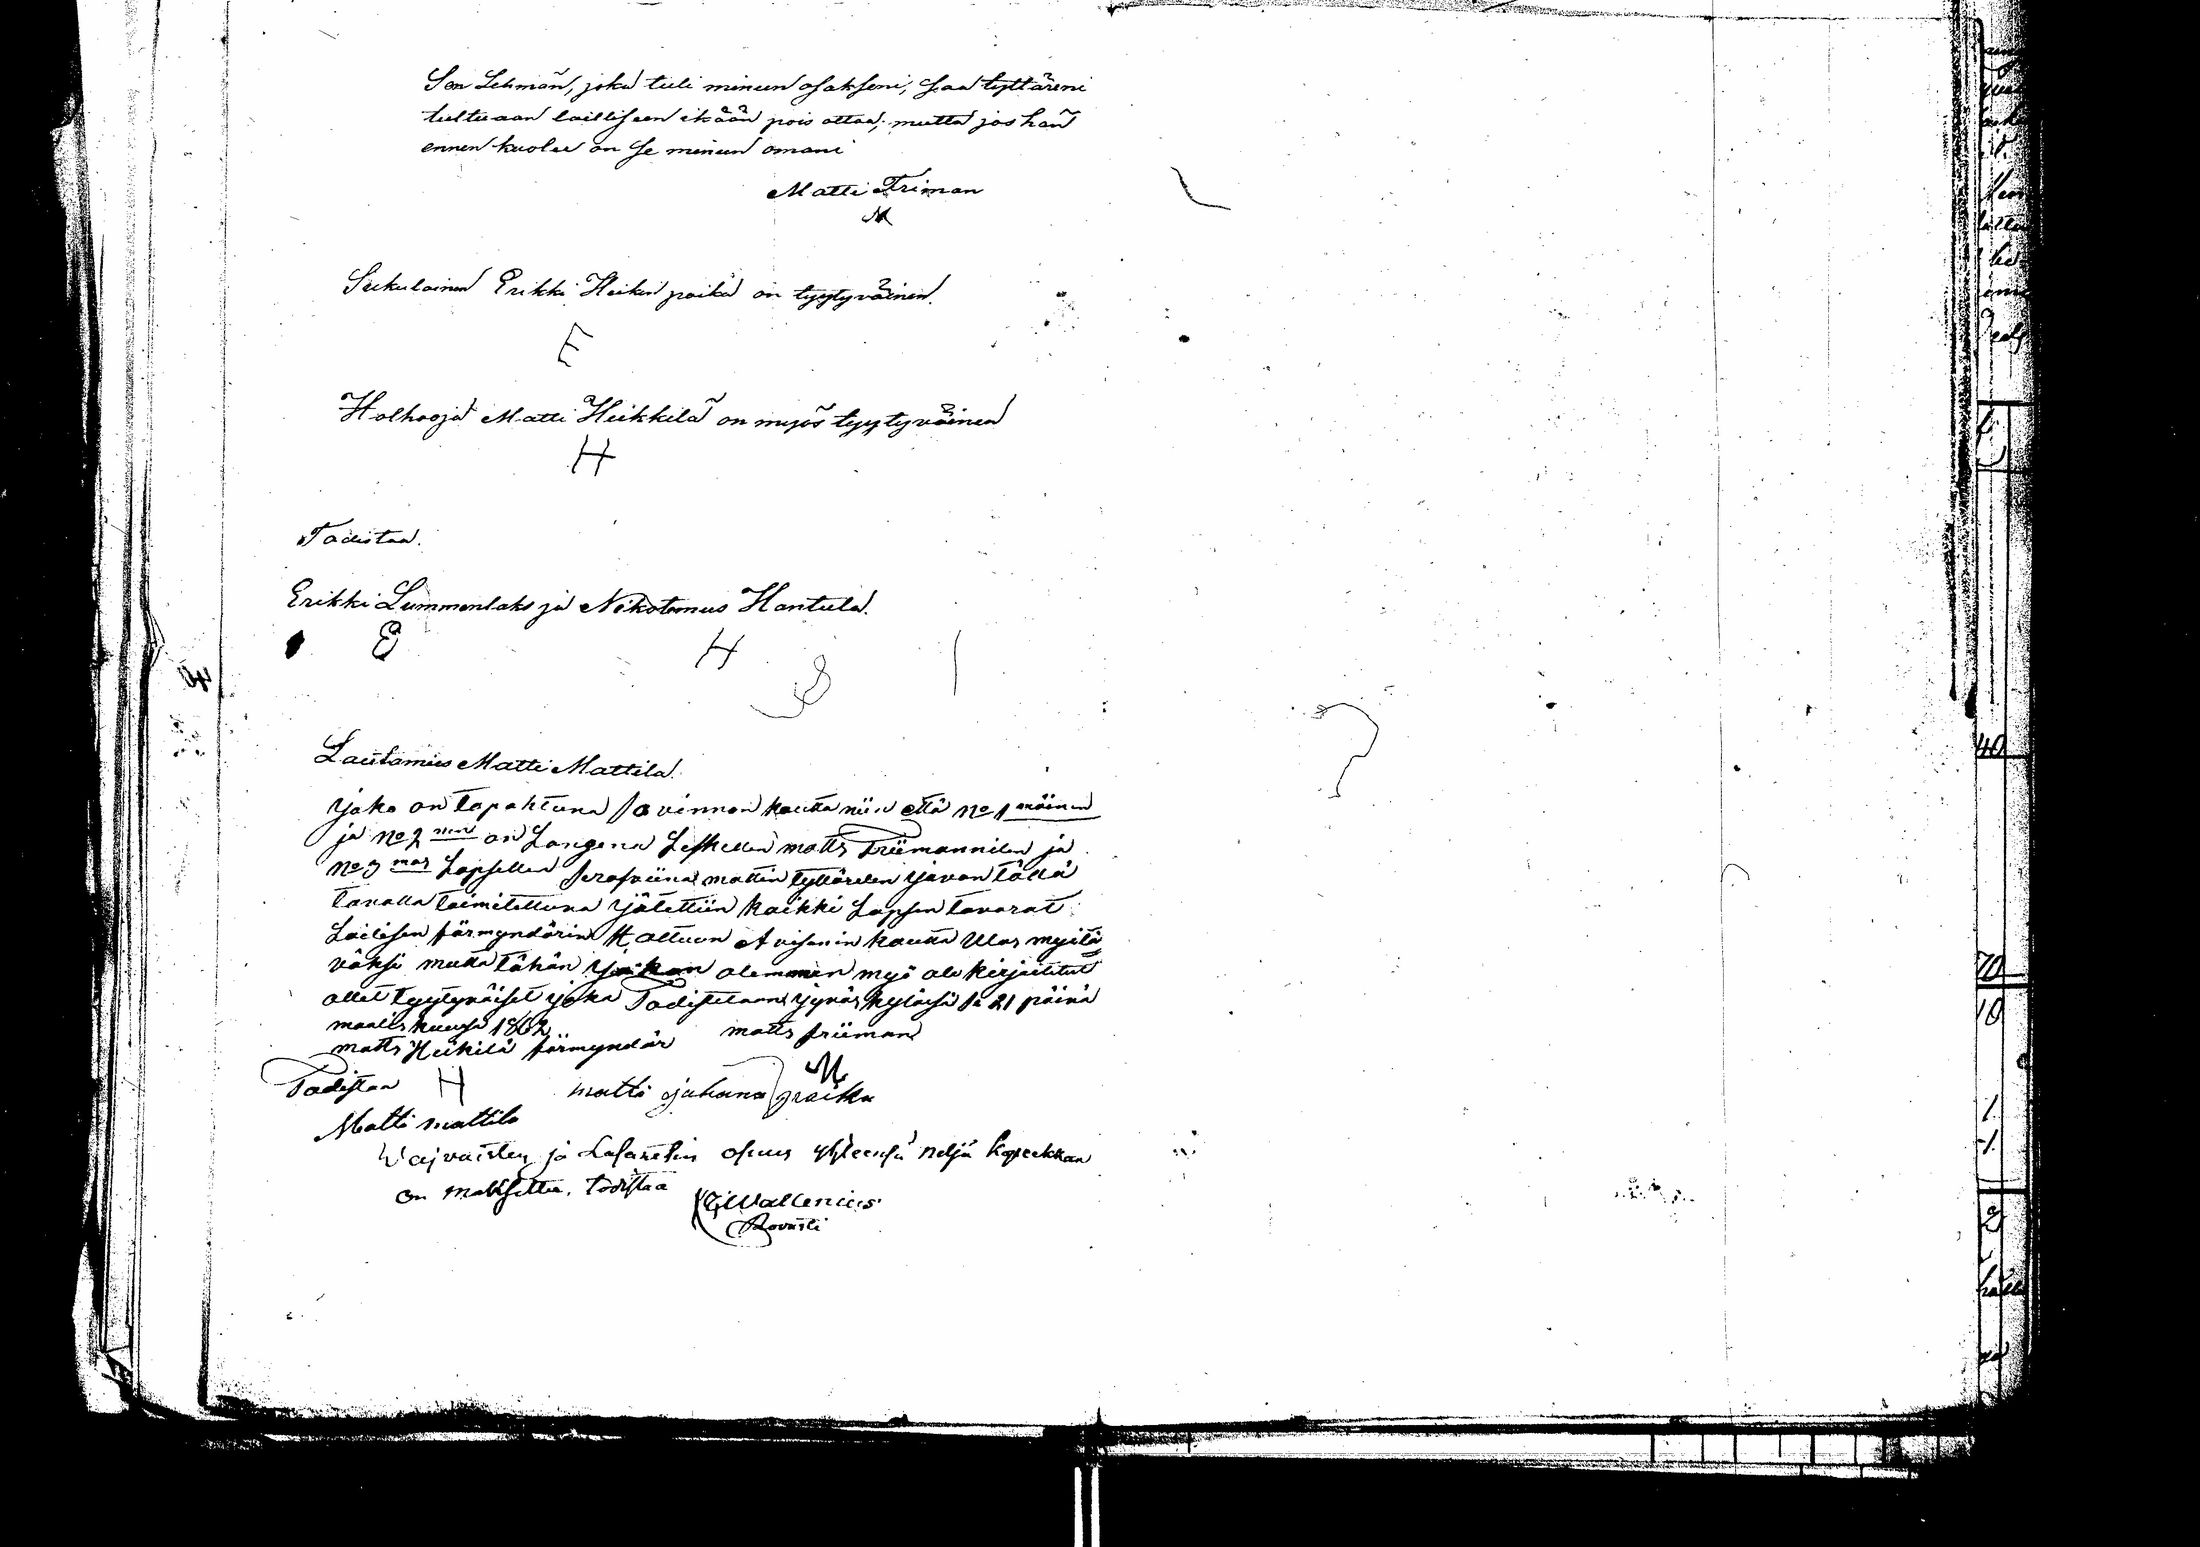 Sen Lehmän, joka tuli minun osakseni, saa tyttäreni
tultuaan lailliseen ikään pois ottaa; mutta jos hän
ennen kuolee on se minun omani
Matti Friman
M
Sukulainen Erikki Heikin poika on tyytyväinen.
E
Holhooja Matti Heikkilä on myös tyytyväinen
H
Todistaa.
Erikki Lummenlaks ja Nikotemus Hantula.
E H
Lautamies Matti Mattila.
Joko on tapahtuna sovinnon kautta niin että No 1 mäinen
ja No 2 nen on Langenu Leskellen matts Friimannilen ja
No 3 mas Lapsellen Serafiina mattin tyttärelen Jaon tällä
tavalla toimitettuna Jätettiin kaikki Lapsen tavarat
Lailisen förmyndärin Haltuun Avisonin kautta Ulos myitä
väksi mutta tähän olemmen myö ale kirjoitetut
ollet tyytyväiset joka Todistetaan jyväskyläsä se 21 päivä
maaliskuusa 1862
matts Heikilä förmyndär matts friiman
Todistaa H M
matti juhana poika
Matti mattila
Waivaisten ja Lasaretin osuus yhteensä neljä kopeekkaa
on maksettu. todistaa
Wallenius
Rovasti
40
70
10
1